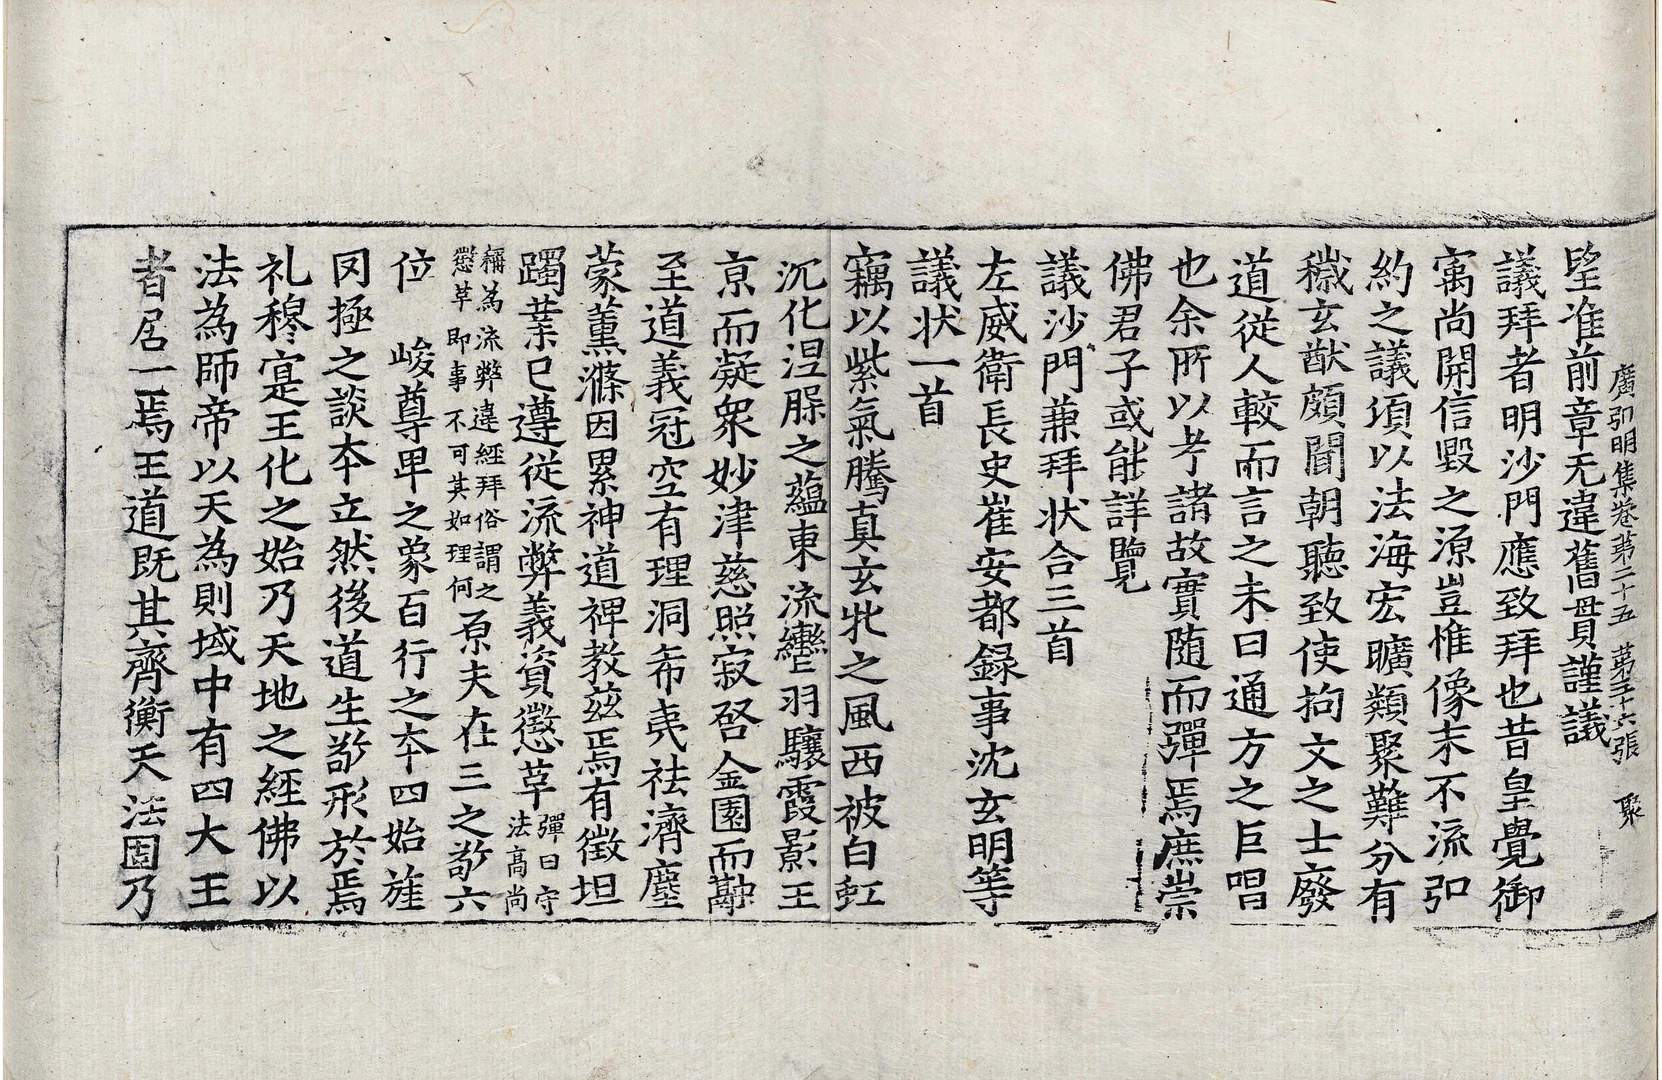 廣弘明集卷第二十五　第三十六張　聚
望准前章无違舊貫謹議
議拜者明沙門應致拜也昔皇覺御
㝢尚開信毀之源豈惟像末不流弘
約之議須以法海宏曠類聚難分有
穢玄猷頗聞朝聽致使拘文之士廢
道從人較而言之未曰通方之巨唱
也余所以考諸故實隨而彈焉庶崇
佛君子或能詳覽
議沙門兼拜狀合三首
左威衛長史崔安都録事沈玄明等
議狀一首
竊以紫氣騰真玄牝之風西被白虹
沉化涅腺之蘊東流巒羽驤霞影王
京而凝衆妙津慈照寂啓金園而勸
至道義冠空有理洞希夷祛濟塵
蒙薰滌因累神道裨教茲焉有徵坦
躅葉已遵從流弊義資懲革彈曰守法高尚
稱為流弊違經拜俗謂之懲革即事不可其如理何原夫在三之敬六
位　峻尊卑之象百行之本四始旌
罔極之談本立然後道生敬形於焉
礼穆寔王化之始乃天地之經佛以
法為師帝以天為則域中有四大王
者居一焉王道既其齊衡天法固乃